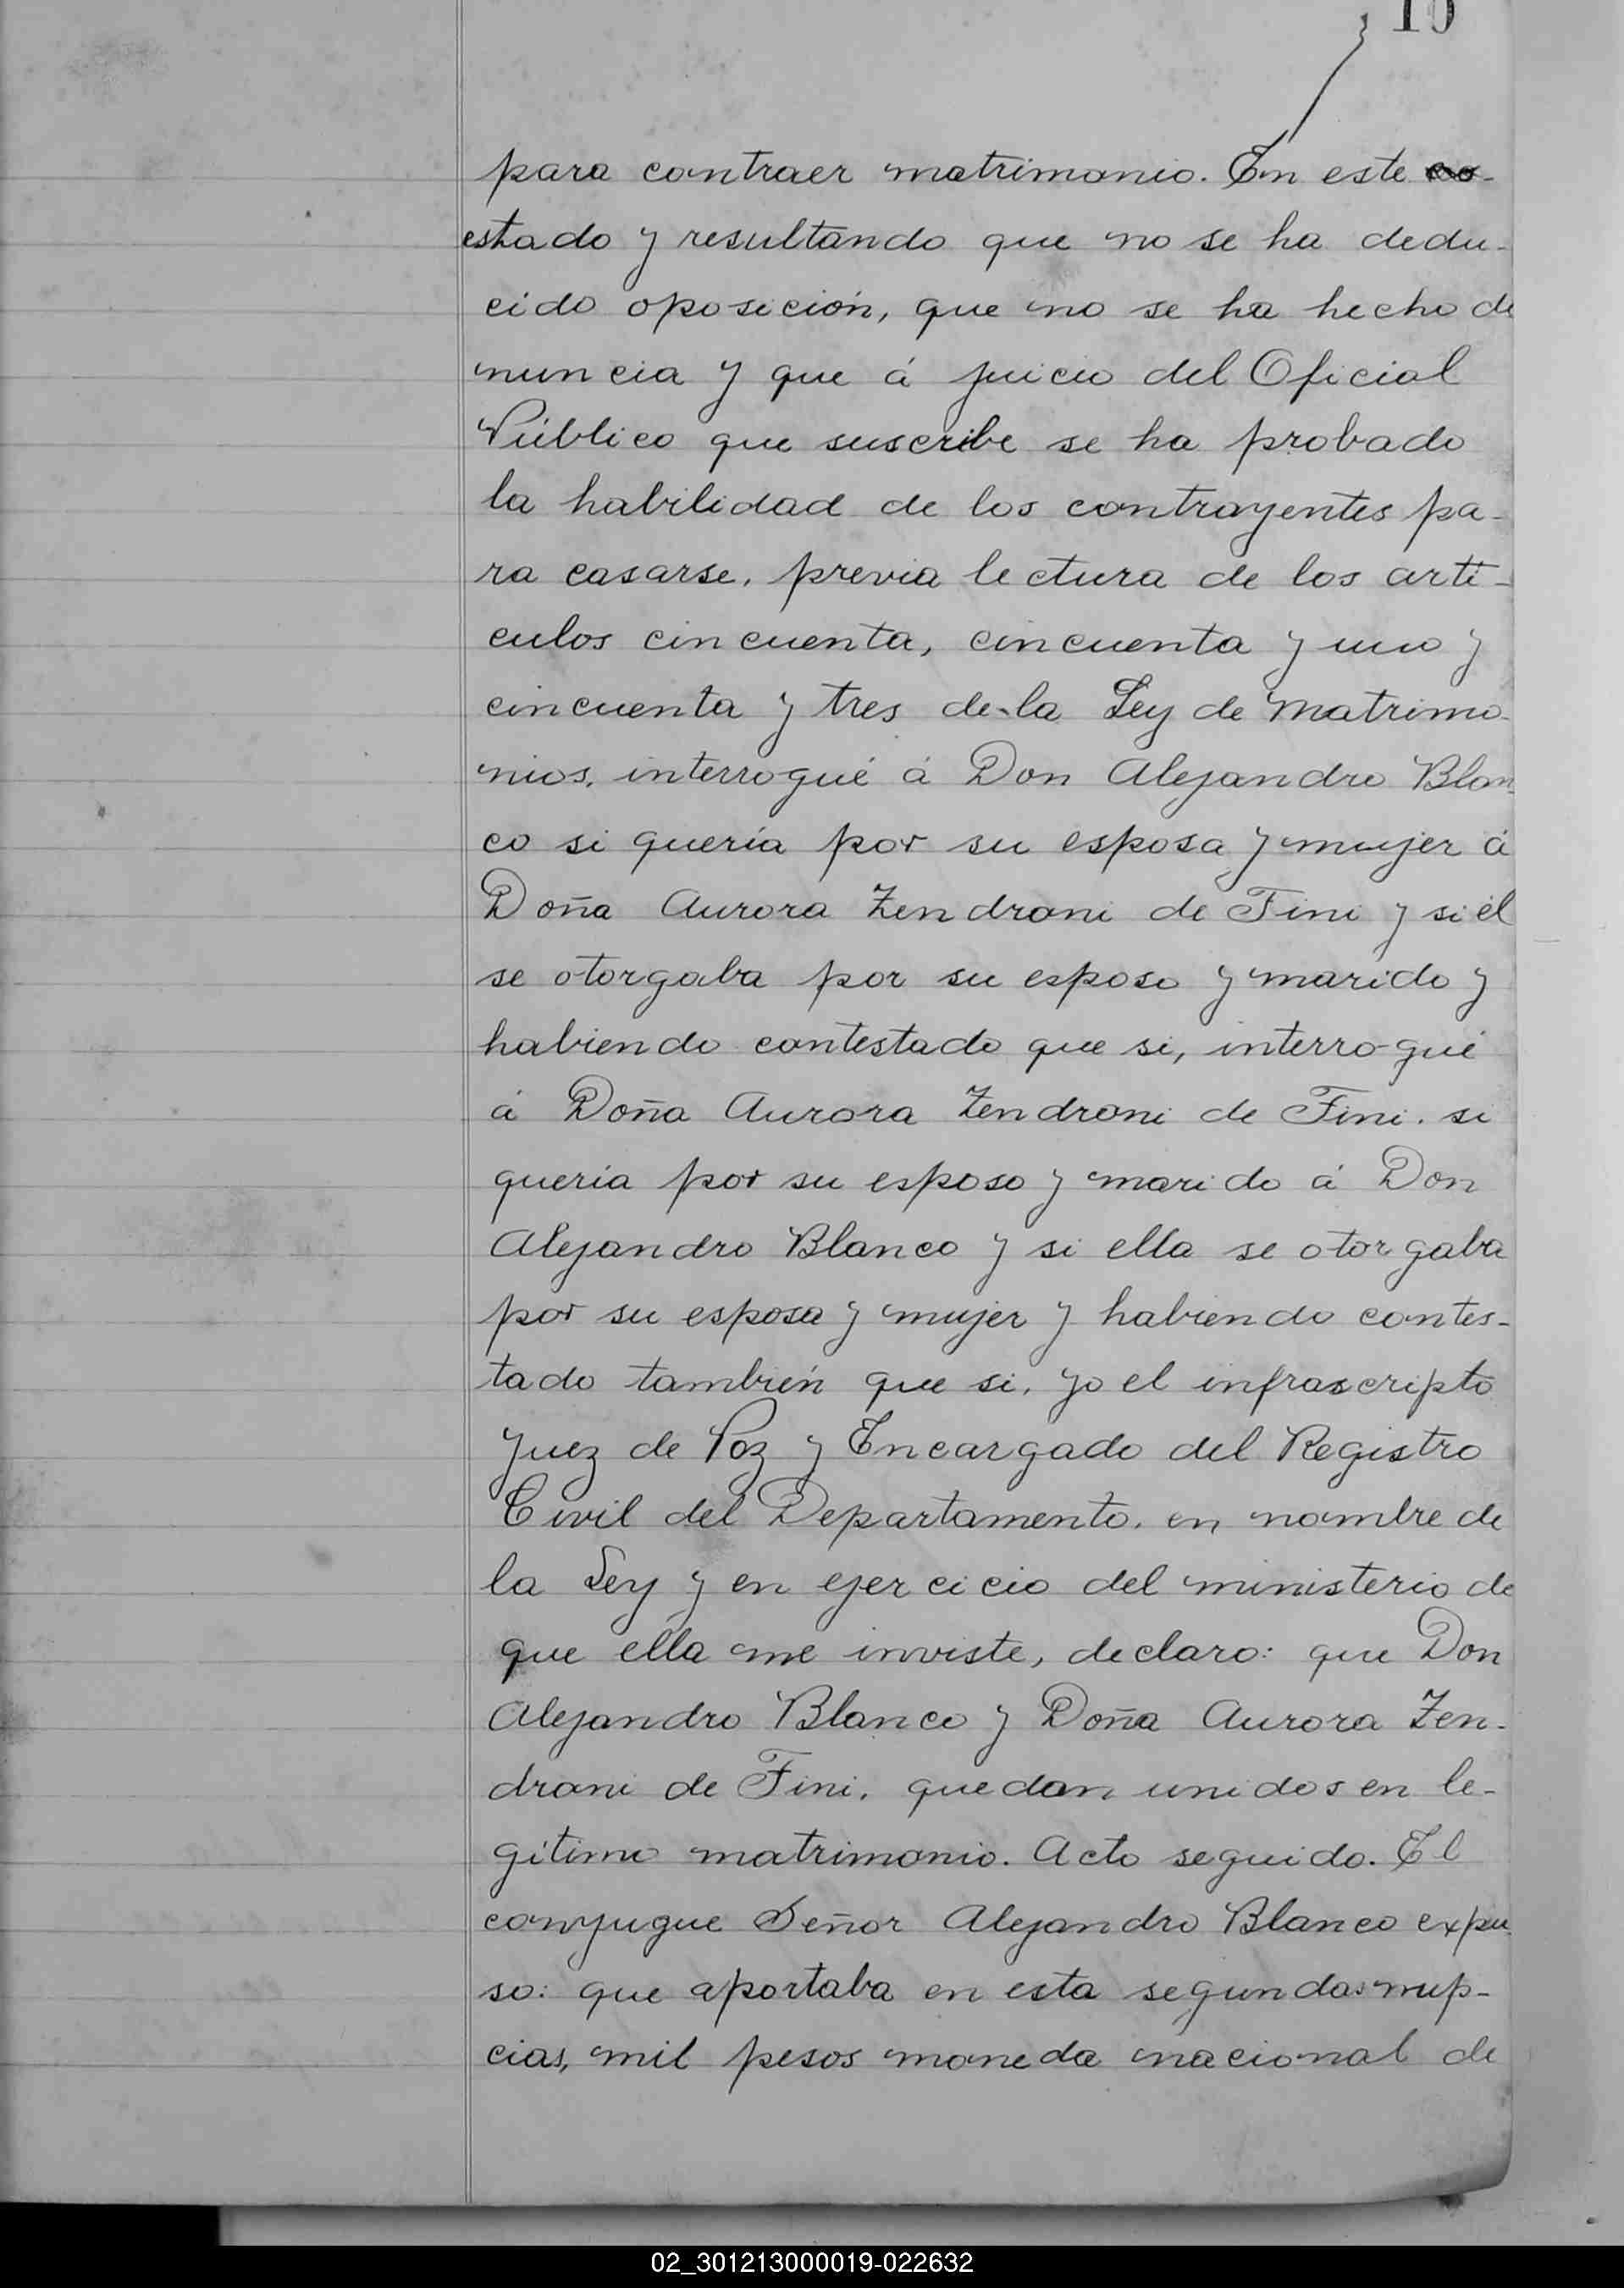 15
para contraer matrimonio. En este
estado y resultando que no se ha dedu-
cido oposición, que no se ha hecho de
nuncia y que á juicio del Oficial
Público que suscribe se ha probado
la habilidad de los contrayentes pa-
ra casarse, previa lectura de los artí-
culos cincuenta, cincuenta y uno y
cincuenta y tres de la Ley de Matrimo-
nios, interrogué á Don Alejandro Blan-
co si quería por su esposa y mujer á
Doña Aurora Zendroni de Fini y si él
se otorgaba por su esposo y marido y
habiendo contestado que si, interrogué
á Doña Aurora Zendroni de Fini. si
quería por su esposo y marido á Don
Alejandro Blanco y si ella se otorgaba
por su esposa y mujer y habiendo contes-
tado también que si, yo el infrascripto
Juez de Paz y Encargado del Registro
Civil del Departamento, en nombre de
la Ley y en ejercicio del ministerio de
que ella me inviste, declaro: que Don
Alejandro Blanco y Doña Aurora Zen-
droni de Fini, quedan unidos en le-
gítimo matrimonio. Acto seguido. El
conyugue Señor Alejandro Blanco expu
so: que aportaba en esta segundas nup-
cias, mil pesos moneda nacional de
02_301213000019-022632